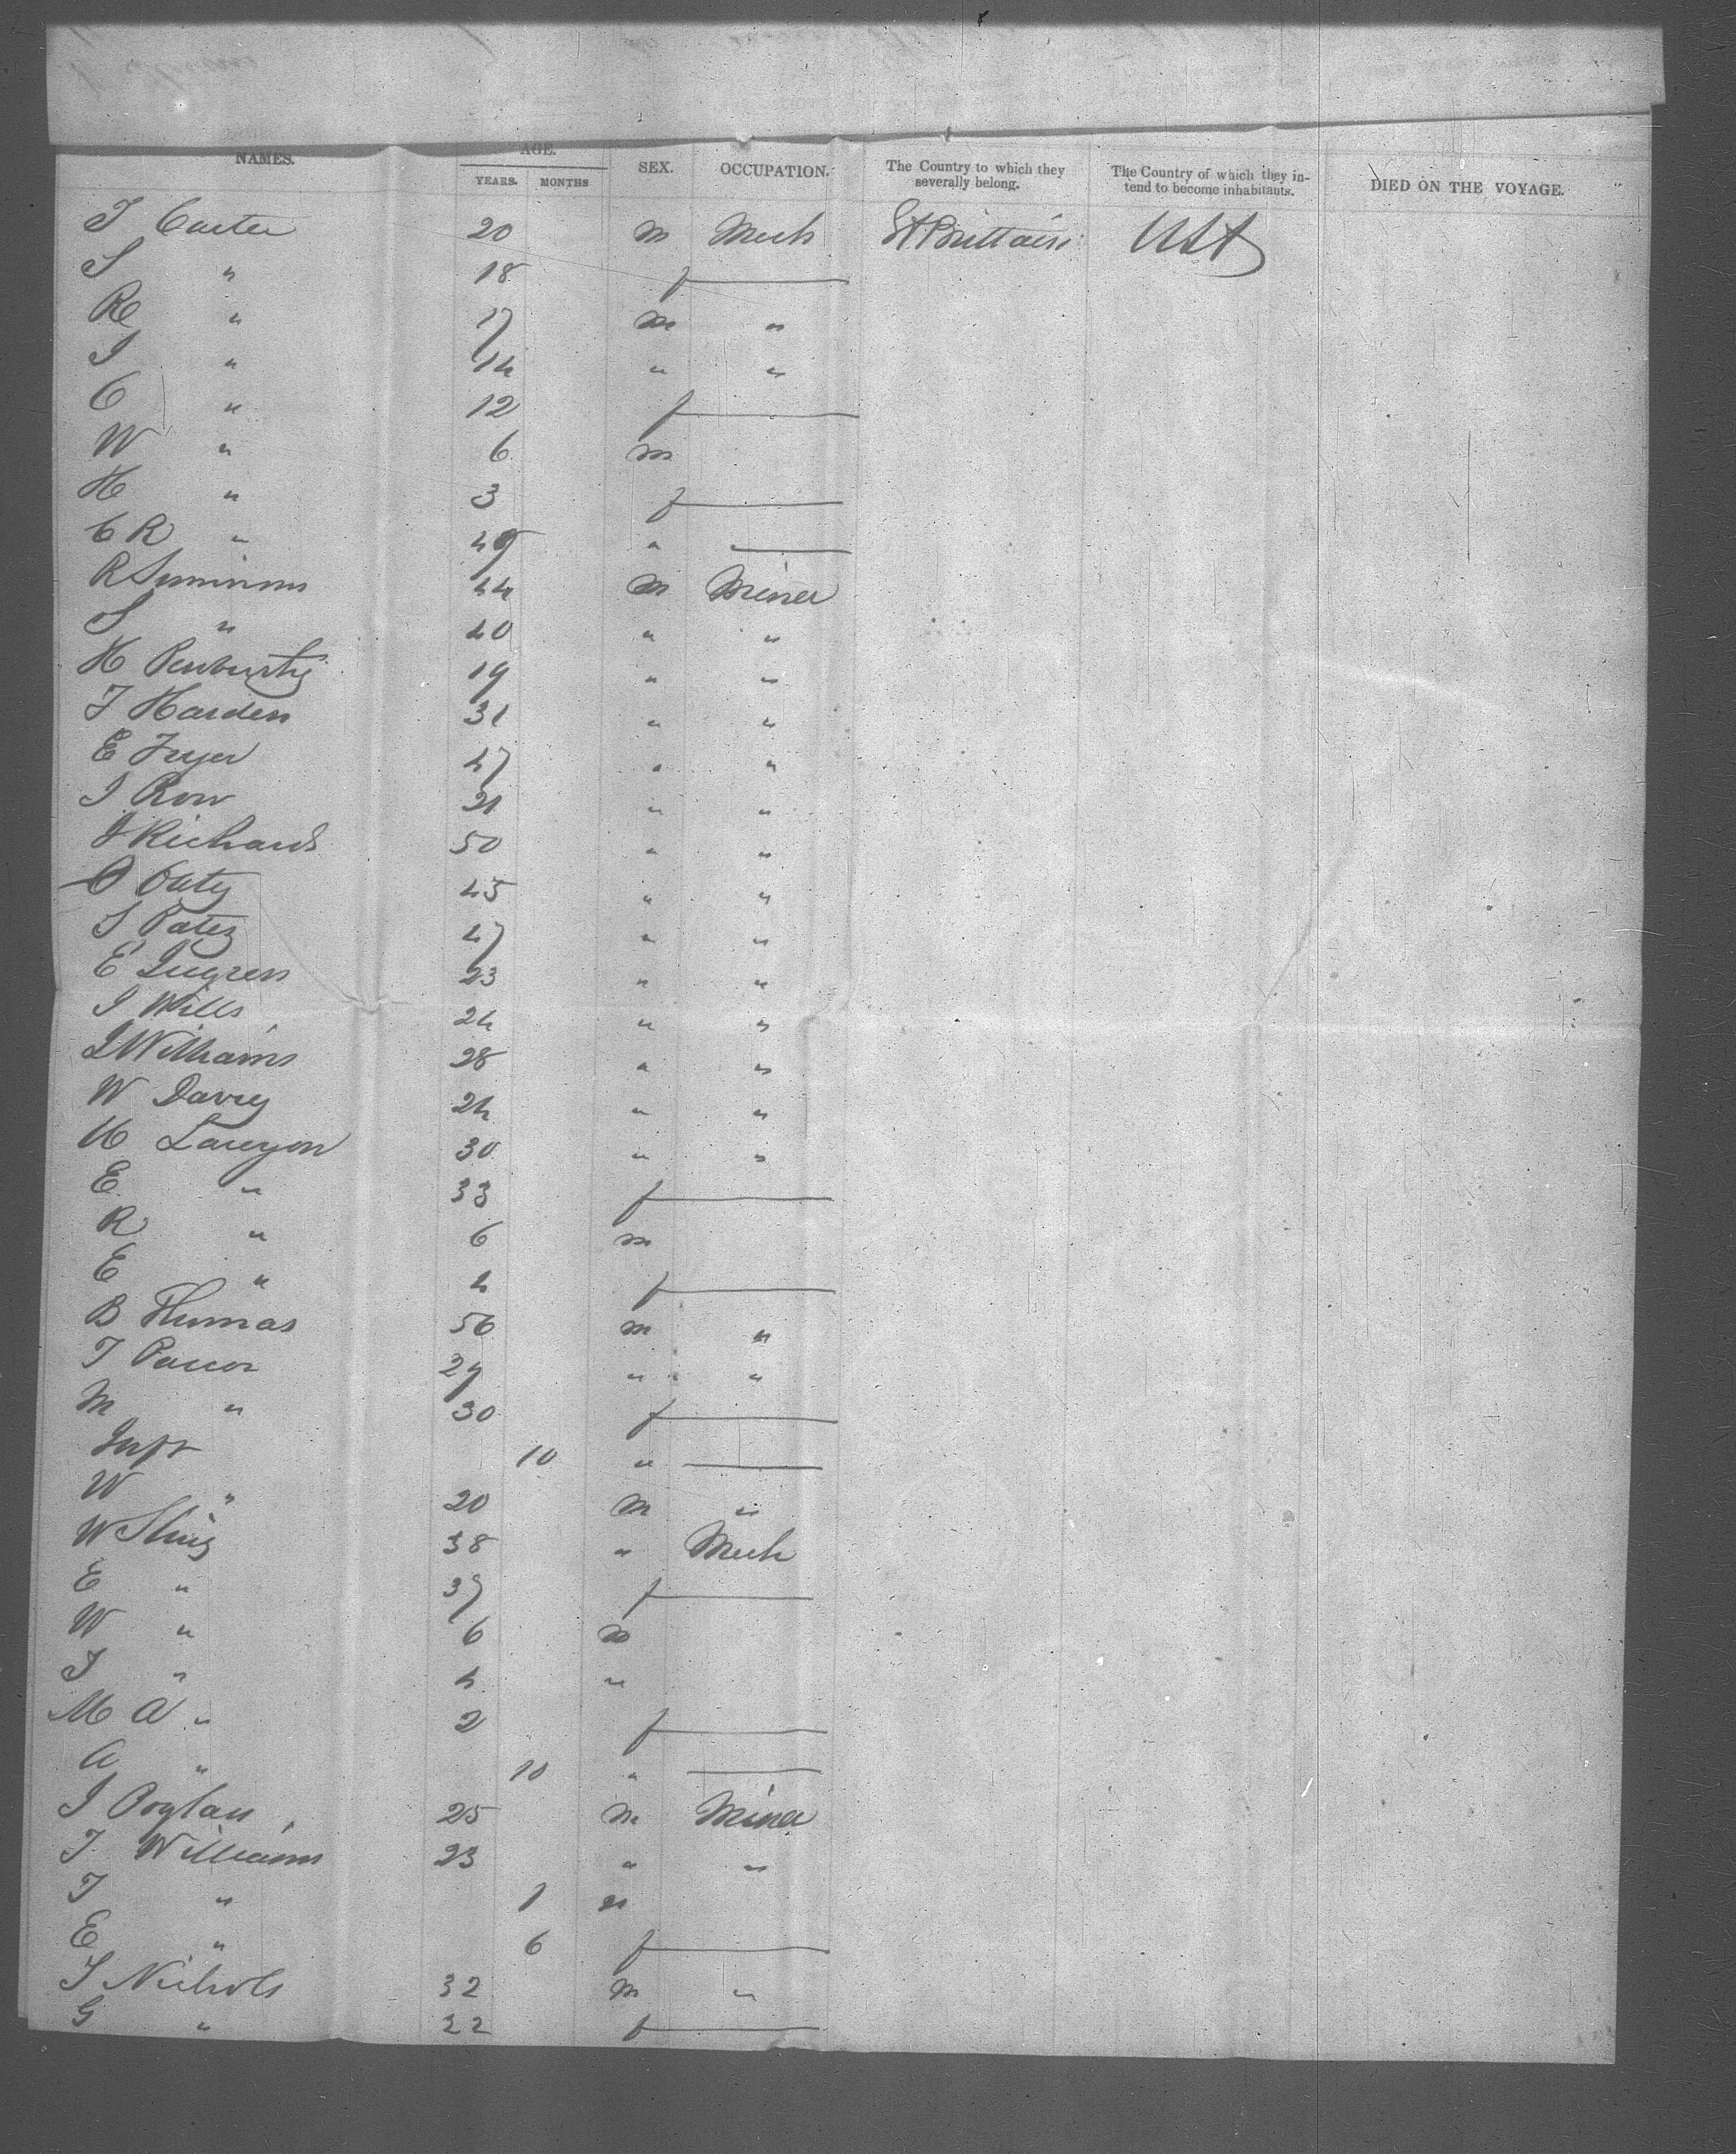 NAMES. AGE. YEARS. MONTHS SEX. OCCUPATION. The Country to which they severally belong. The Country of which they intend to become inhabitants. DIED ON THE VOYAGE.
T Carter 20 m Mech Gt Brittain USA
S " 18 f
R " 17 m " 
J " 14 " "
C " 12 f
W " 6 m
H " 3 f
C R " 49 "
R Simmons 44 m Miner
S " 40 " "
H 19 " "
T Harden 31 " "
E Fryer 47 " "
J Row 21 " "
J Richards 50 " "
O Oaty 45 " "
S 47 " "
E 23 " "
J Wills 24 " "
J Williams 28 " "
W Davey 24 " "
H Lanyon 30 " "
E " 33 f
R " 6 m
E " 4 f
B Thomas 56 m "
T 29 " "
M " 30 f
Inft 10 "
W " 20 m "
W 38 " Mech
E " 37 f
W " 6 m
J " 4 "
M A " 2 f
A " 10 "
J 25 m Miner
T Williams 23 " "
T " 1 m
E " 6 f
J Nichols 32 m "
G " 22 f